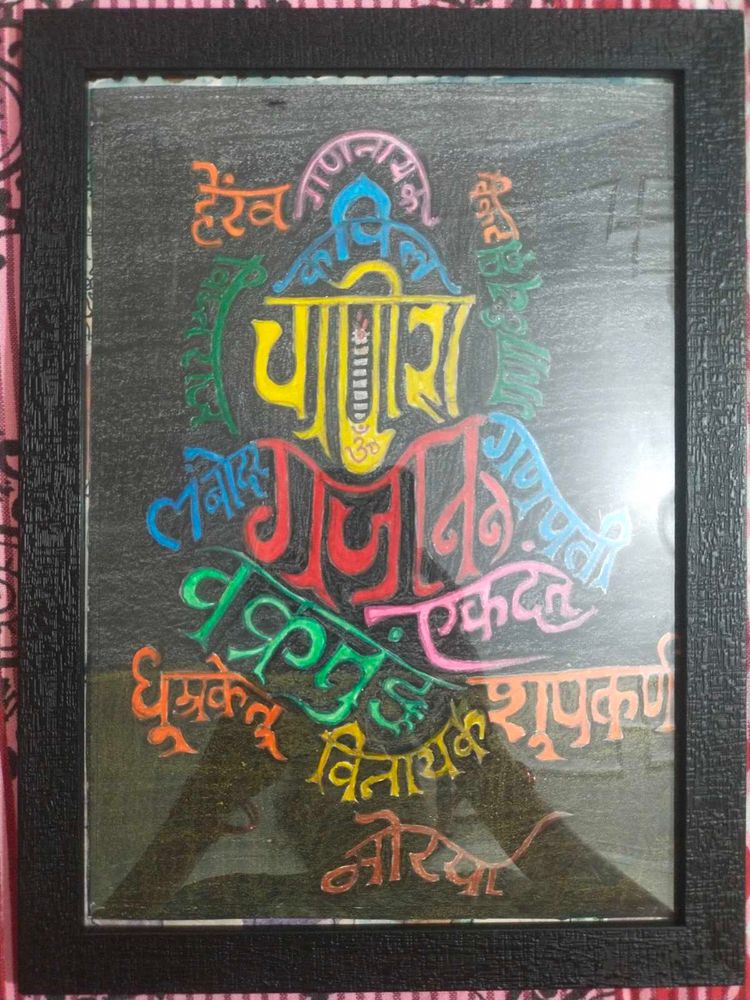 गणनायक
हेंरव
कविल
ॐ
लंबोदर गजानन गणपती
एकदंत
वक्रतुंड
धुम्रकेतू शूपकर्ण
विनायक
मोरया